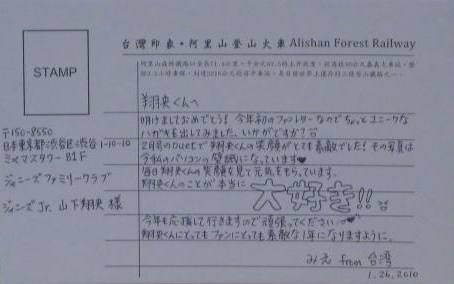 台灣印象・阿里山登山火車 Alishan Forest Railway
STAMP
翔央くんへ
明けましておめでとう! 今年初のファンレターなのでちょっとユニークな
ハガキを出してみました、いかがですか?
2月号のDuetで翔央くんの笑顔がとても素敵でした! その写真は
今私のパソコンの壁紙になっています♥
毎日翔央くんの笑顔を見て元気をもらっています。
翔央くんのことが本当に 大好き!!
今年も応援して行きますので頑張ってください♥
翔央くんにとってもファンにとっても素敵な1年になりますように。
みえ from 台湾
1.26.2010
〒150-8550
日本東京都渋谷区渋谷1-10-10
ミヤマスタワーB1F
ジャニーズファミリークラブ
ジャニーズJr. 山下翔央 様